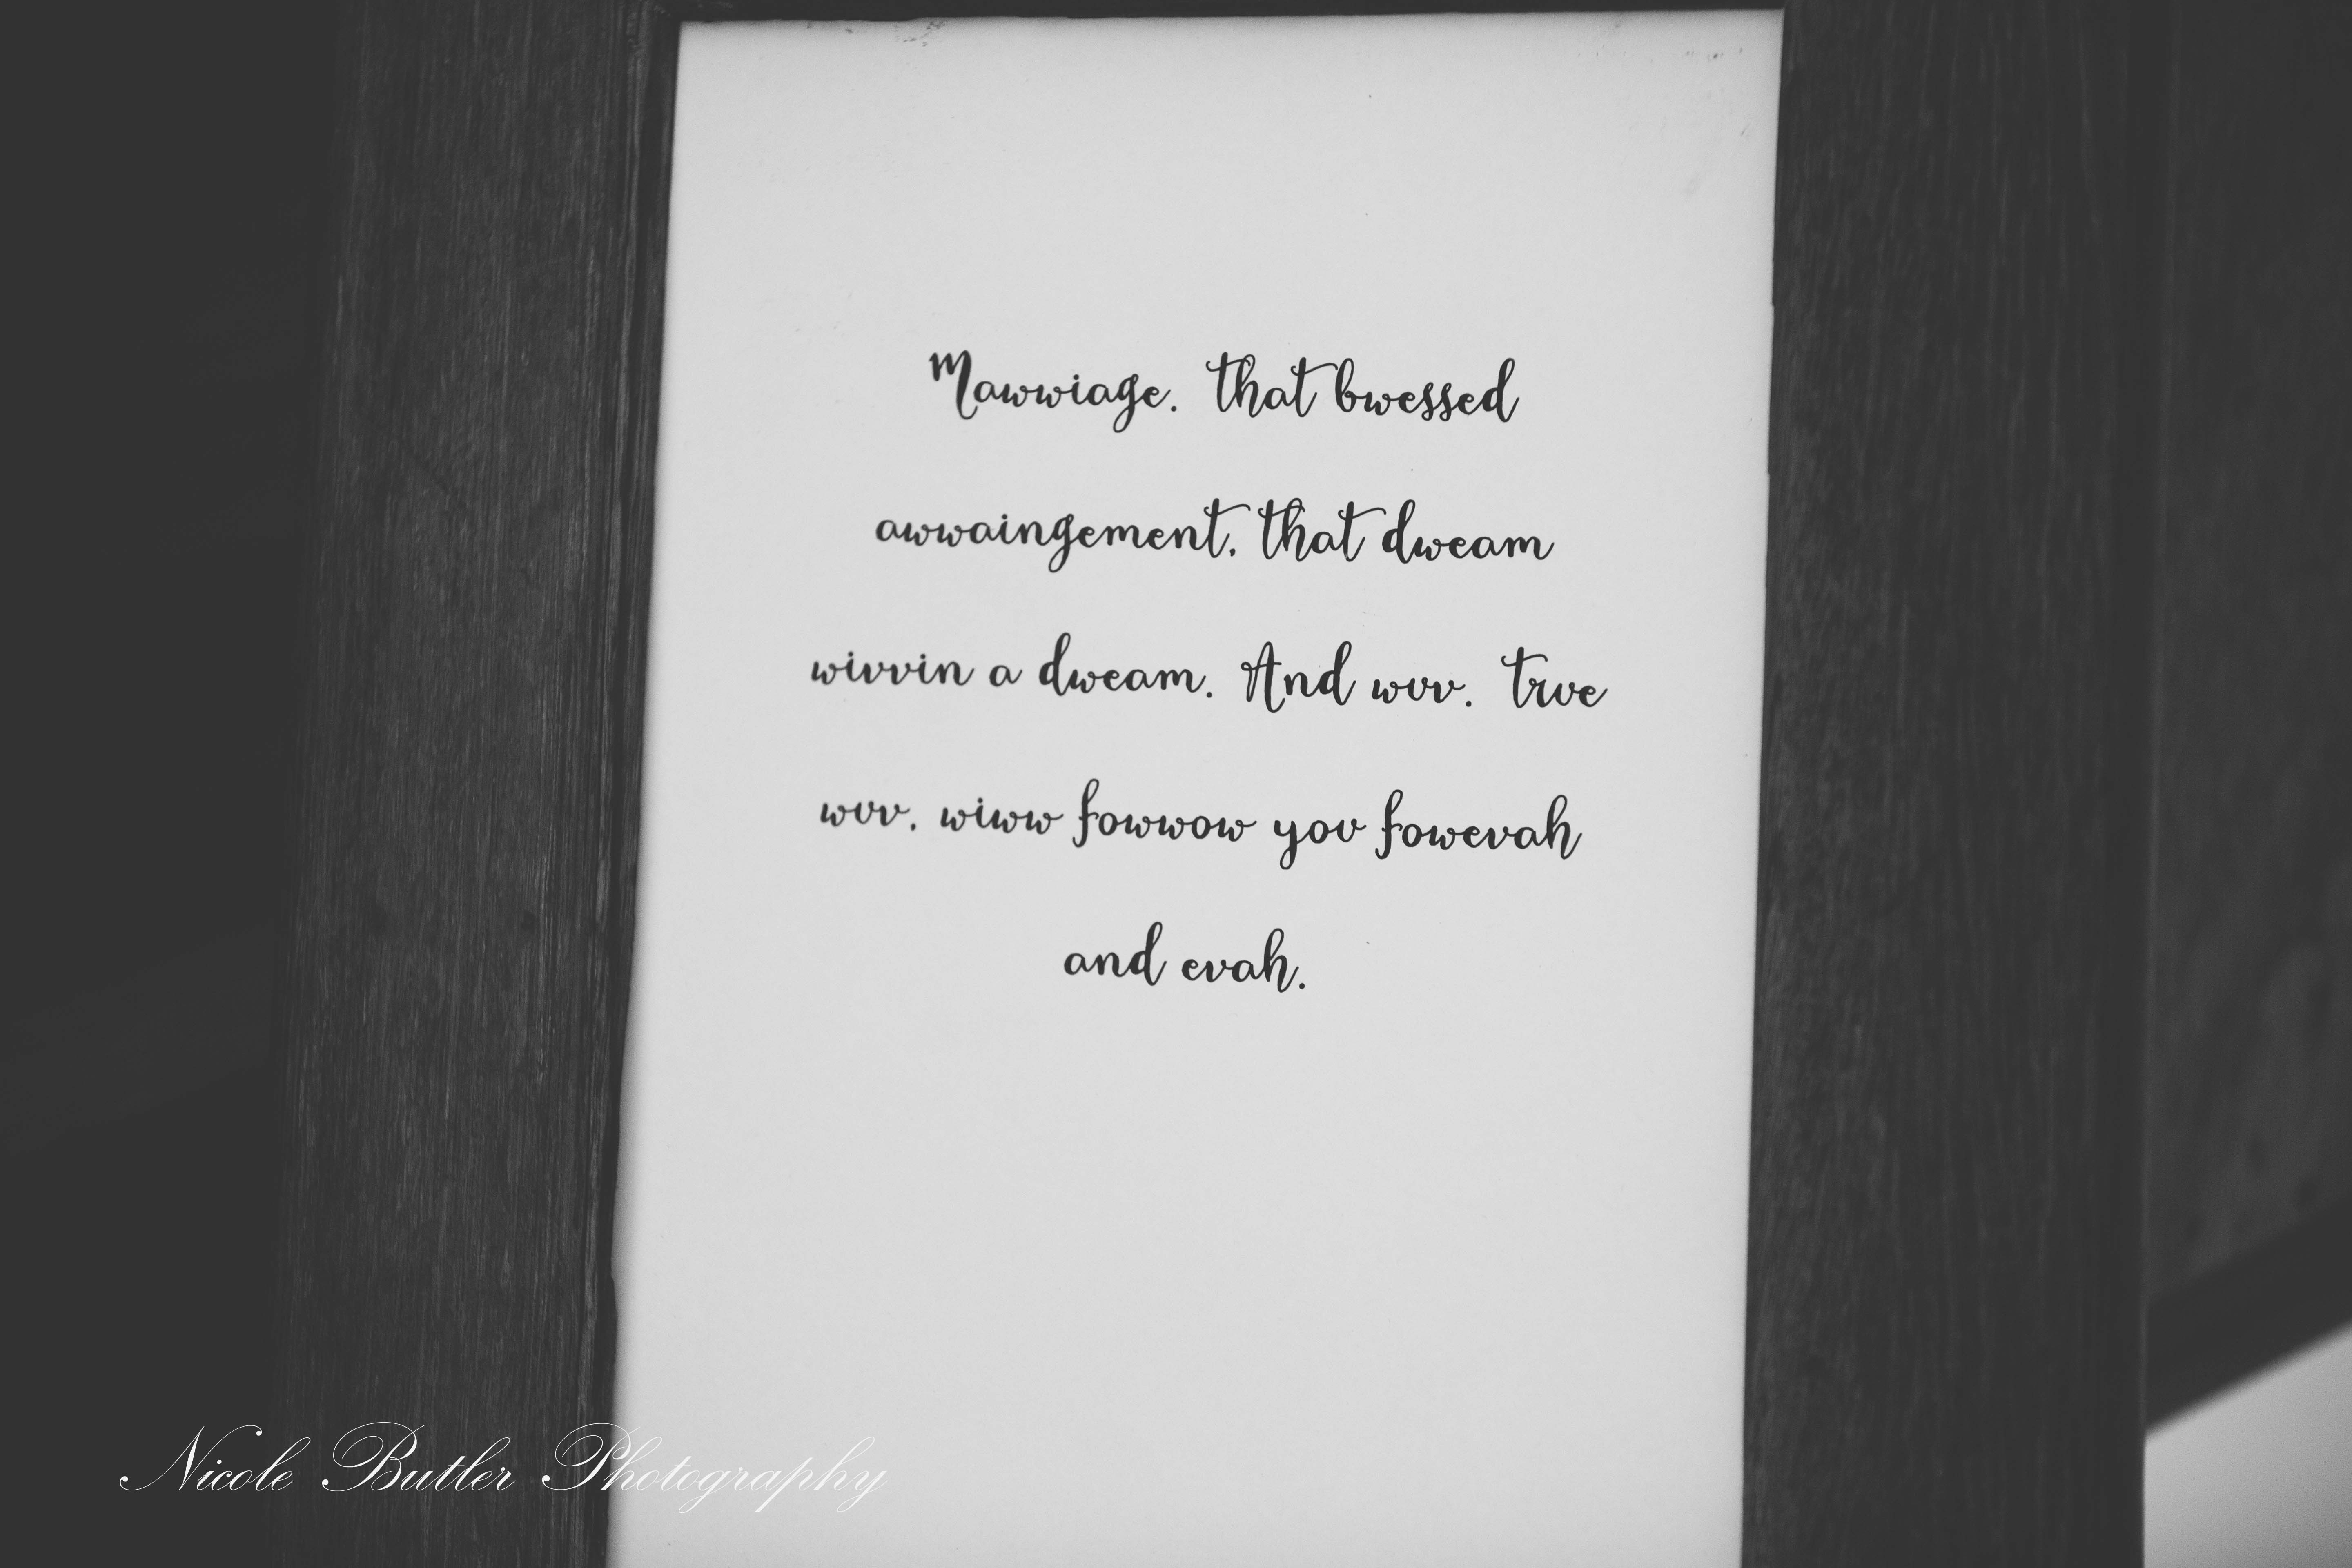 Mawwiage. that bwessed
awwaingement, that dweam
wivvin a dweam. And wuv. true
wuv, wiww fowwow you fowevah
and evah.
Nicole Butler Photography